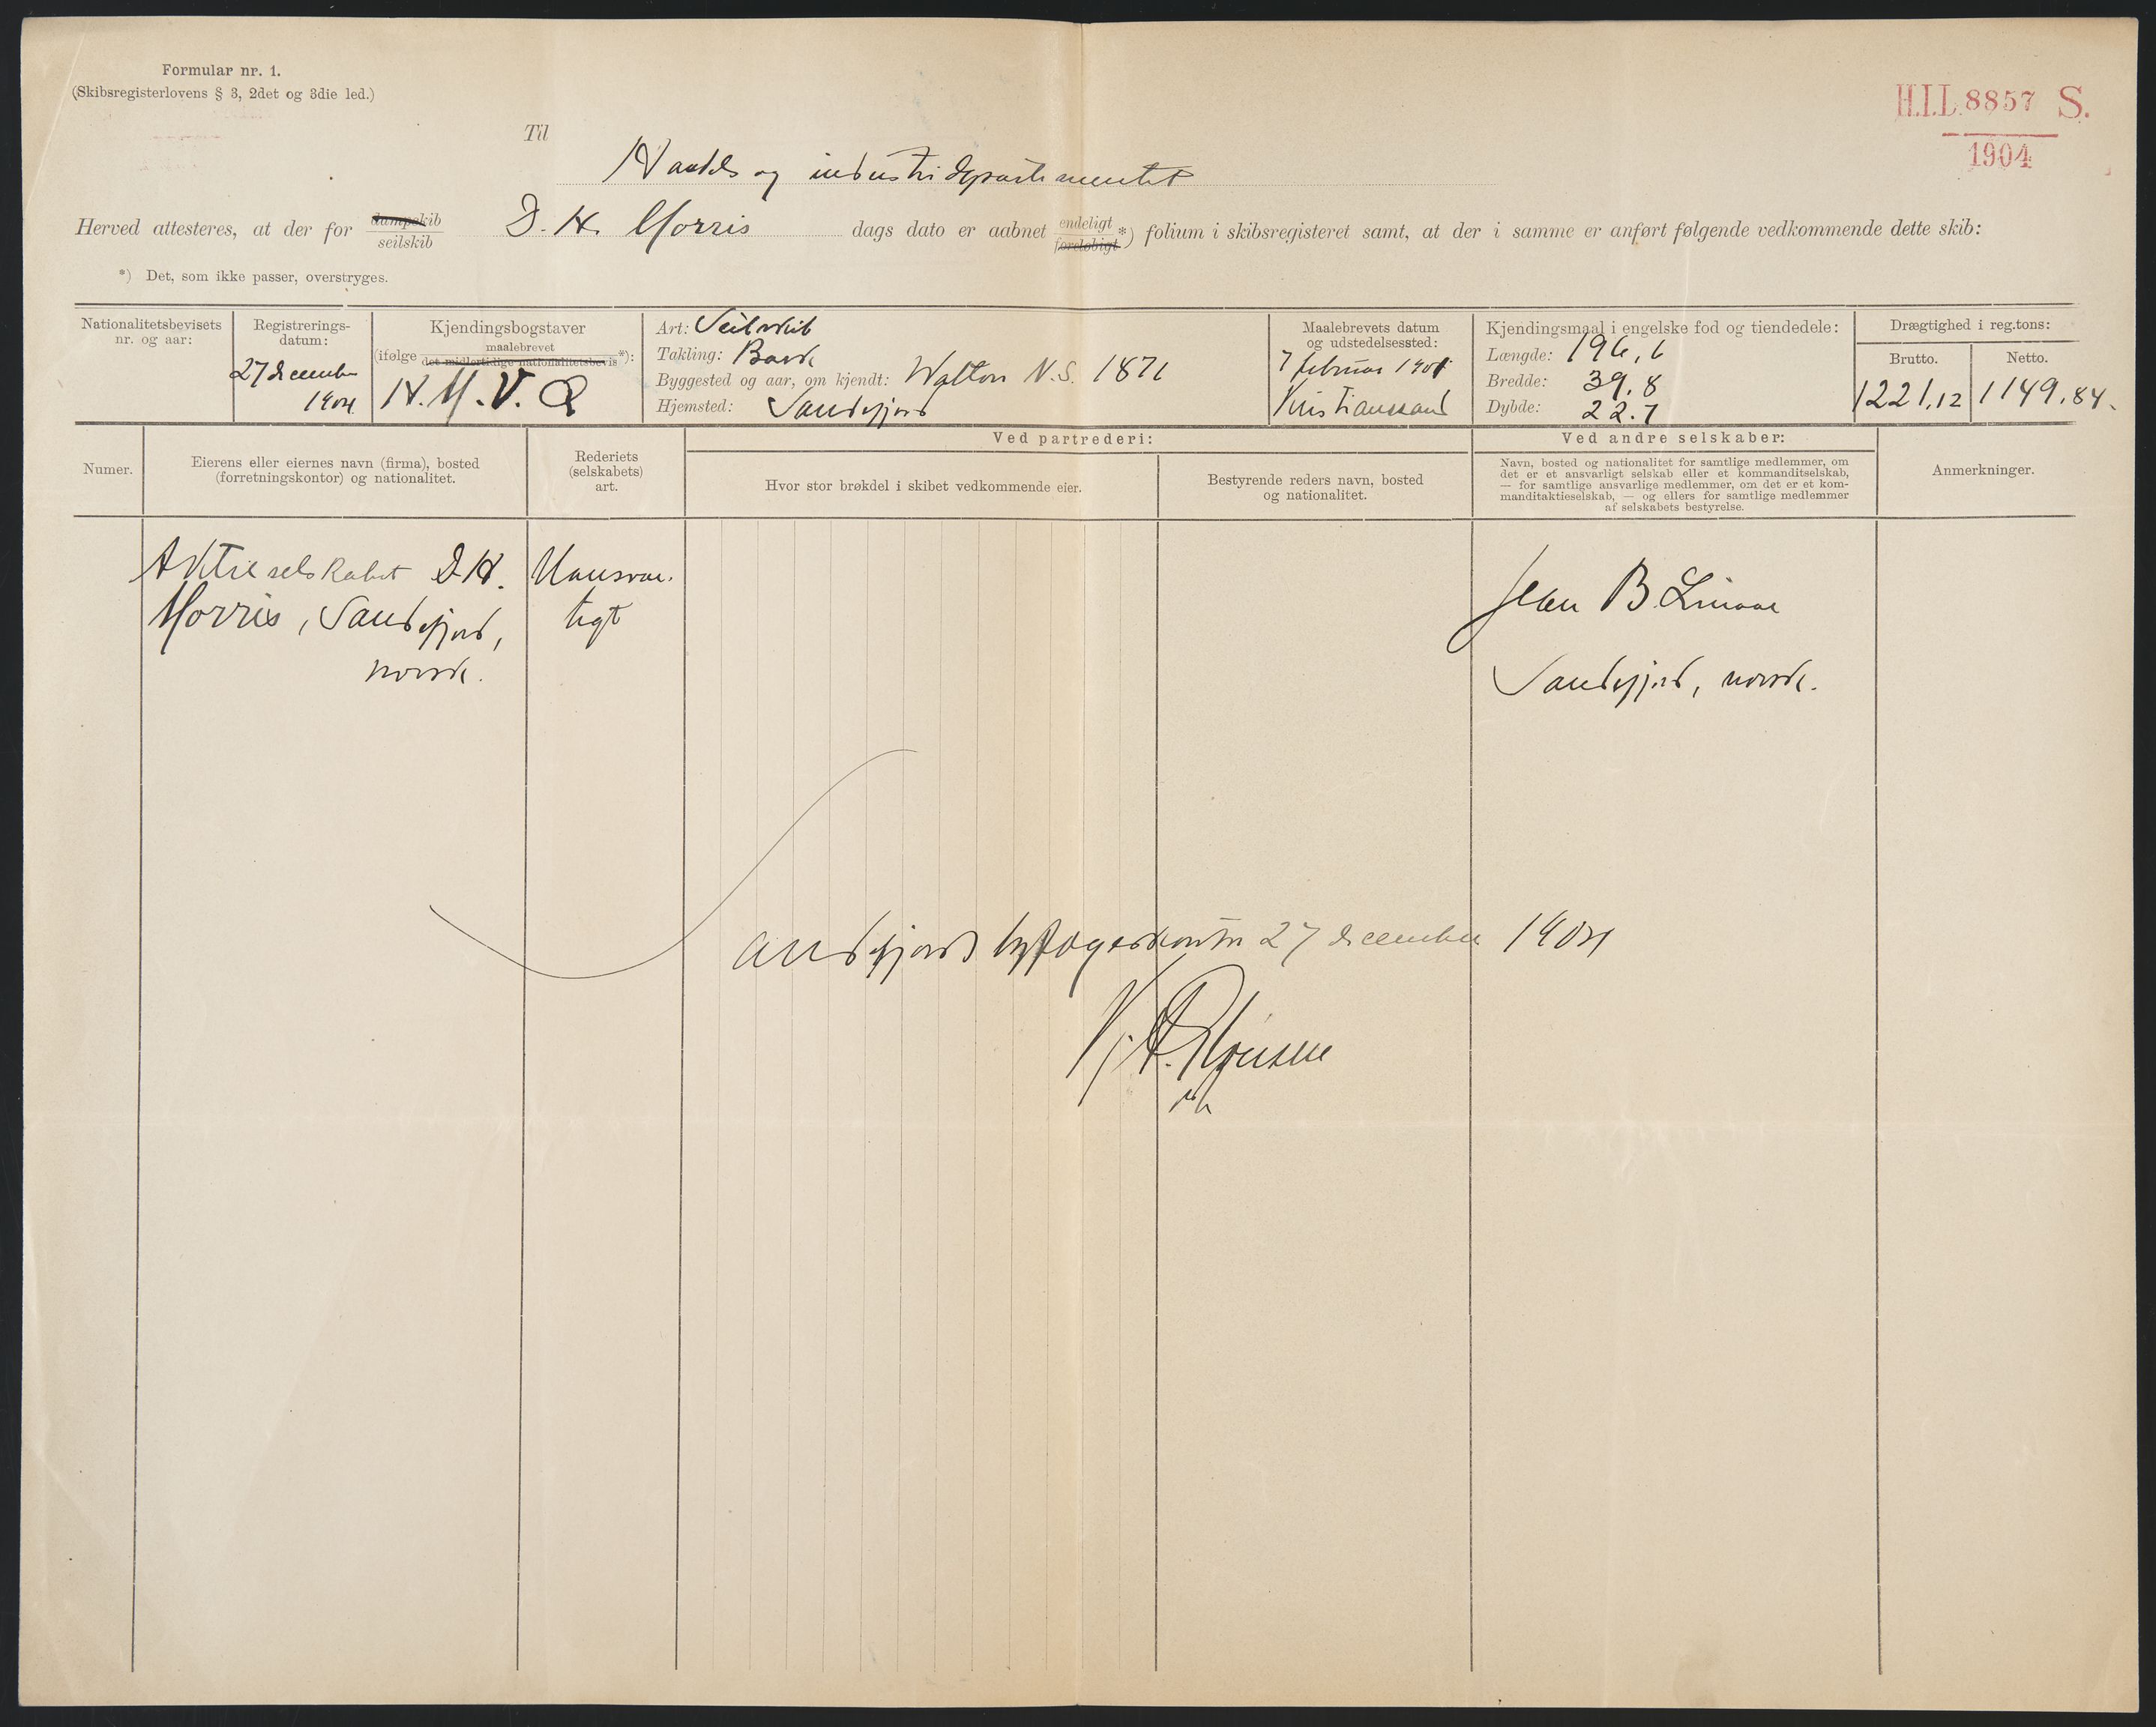 Formular nr. 1.
(Skibsregisterlovens § 3, 2det og 3die led.)
H.I.D. 8857 S.
1904
Til
Handels og industridepartementet
Herved attesteres, at der for dampskib seilskib D. H. Morris dags dato er aabnet endeligt foreløbigt *) folium i skibsregisteret samt, at der i samme er anført følgende vedkommende dette skib:
*) Det, som ikke passer, overstryges.
Nationalitetsbevisets nr. og aar:
Registrerings-
datum:
27 december
1904
Kjendingsbogstaver
(ifølge maalebrevet det midlertidige nationalitetsbevis *):
H. M. V. Q
Art: Seilskib
Takling: Bark
Byggested og aar, om kjendt: Walton N.S. 1871
Hjemsted: Sandefjord
Maalebrevets datum
og udstedelsessted:
7 februar 1901
Kristianssand
Kjendingsmaal i engelske fod og tiendedele:
Længde: 196,6
Bredde: 39.8
Dybde: 22.7
Drægtighed i reg.tons:
Brutto.
1221,12
Netto.
1149,84.
Numer.
Eierens eller eiernes navn (firma), bosted
(forretningskontor) og nationalitet.
Rederiets
(selskabets)
art.
Ved partrederi:
Hvor stor brøkdel i skibet vedkommende eier.
Bestyrende reders navn, bosted
og nationalitet.
Ved andre selskaber:
Navn, bosted og nationalitet for samtlige medlemmer, om
det er et ansvarligt selskab eller et kommanditselskab,
— for samtlige ansvarlige medlemmer, om det er et kom-
manditaktieselskab, — og ellers for samtlige medlemmer
af selskabets bestyrelse.
Anmerkninger.
Aktieselskabet D. H.
Morris, Sandefjord,
norsk.
Uansvar.
ligt
Jean B. Linaae
Sandefjord, norsk.
Sandefjords byfogedkontor 27 december 1904